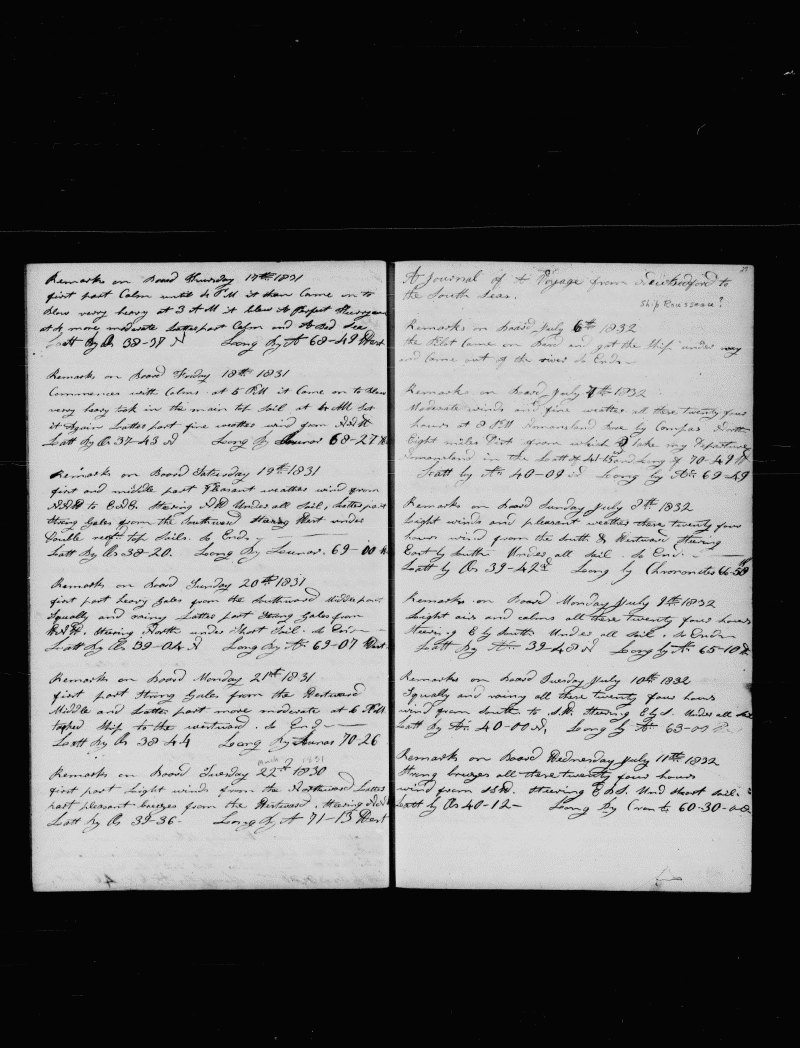 Remarks on Board Thursday 17th 1831
first part Calm until 4 PM it then Came on to
Blow very heavy at 3 AM it blew A Perfect Hurrycan
at 4 more moderate Latter part Calm and A Bad Sea
Latt By Obs 38-37 N Long By Ar 68-49 West
Remarks on Board Friday 18th 1831
Commences with Calms at 5 PM it Came on to Blow
very heavy took in the main top Sail at 4 AM Set
it Again Latter part fine weather wind from NNW
Latt By Obs 37-43 N Long By Lunar 68-27 W
Remarks on Board Saturday 19th 1831
first and middle part Pleasant weather wind from
to ENE Steering NW Under all Sail, Latter part
Strong Gales from the Southward Steering West under
Double reeft top Sails. So Ends
Latt By Obs 38-20. Long By Lunar. 69-00 W
Remarks on Board Sunday 20th 1831
first part heavy Gales from the Southward Middle part
Squally and rainy Latter part Strong Gales from
Steering North under Short Sail. So Ends
Latt By Obs 39-04 N Long By Ar 69-07 West
Remarks on Board Monday 21st 1831
first part Strong Gales from the Westward
Middle and Latter part more moderate at 6 PM
Ship to the westward. So Ends
Latt By Obs 38-44 Long By Lunar 70-26
March 1831
Remarks on Board Tuesday 22nd 1830
first part Light winds from the Northward Latter
part pleasant breezes from the Westward. Steering
Latt By Obs 39-36. Long By Ar 71-13 West
A Journal of A Voyage from New Bedford to
the South Seas.
Ship Rousseau?
Remarks on Board July 6th 1832
the Pilot Came on Board and got the Ship under way
and Came out of the river So Ends
Remarks on Board July 7th 1832
Moderate winds and fine weather all these twenty four
hours at 8 PM Nomansland bore by Compas North
Eight miles Dist from which I take my Departure
Nomansland in the Latt of 41-15 and Long of 70-49 W
Latt by Ar 40-09 N Long by Ar 69-49
Remarks on Board Sunday July 8th 1832
Light winds and pleasant weather these twenty four
hours wind from the South & Westward Steering
East by South Under all sail. So Ends
Latt by Obs 39-42 Long by Chronometer
Remarks on Board Monday July 9th 1832
Light airs and calms all these twenty four hours
Steering E by South Under all sail. So Ends
Latt By Ar 39-48 N Long by Ar 65-10 W
Remarks on Board Tuesday July 10th 1832
Squally and rainy all these twenty four hours
wind from South to S.W. Steering E by S. Under all Sail
Latt By Ar 40-00 N, Long By Ar 63-00
Remarks on Board Wednesday July 11th 1832
Strong breezes all these twenty four hours
wind from SSW. Steering E by S. Und Short sail.
Latt by Obs 40-12 Long By 60-30-00